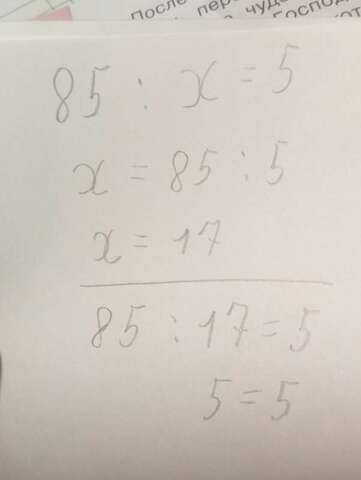 после пер
чуд
Господ
85 : x = 5
x = 85 : 5
x = 17
85 : 17 = 5
5 = 5